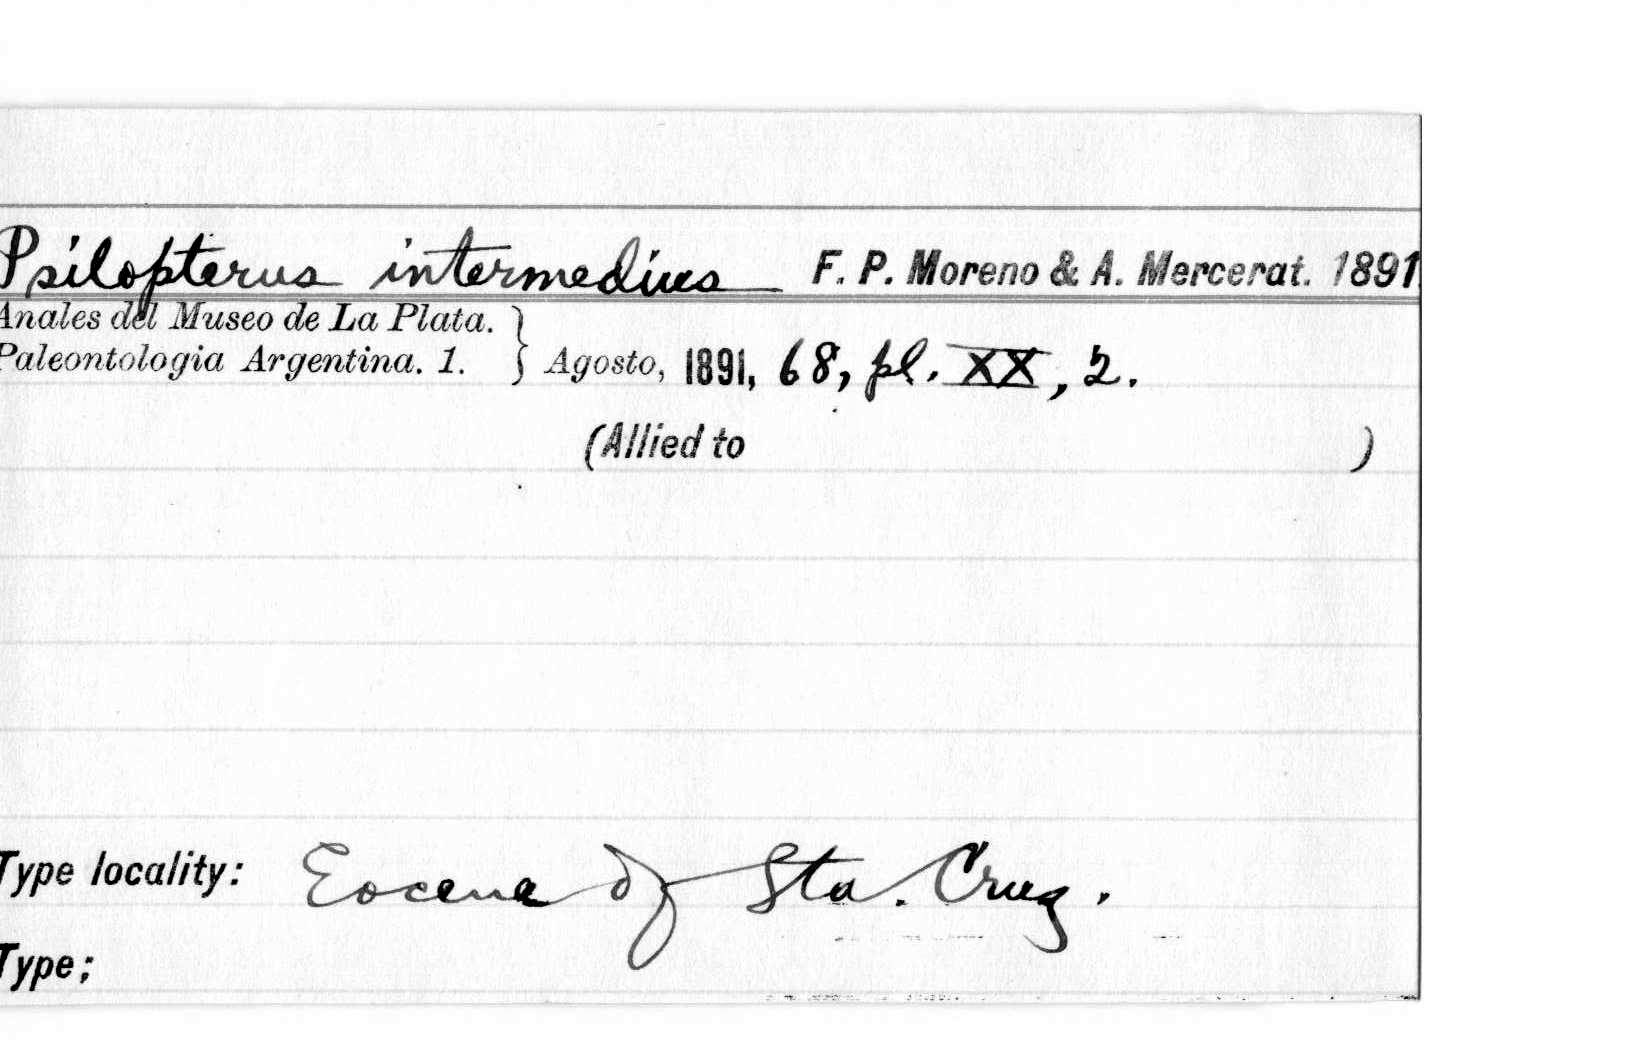 Psilopterus intermedius F. P. Moreno & A. Mercerat. 1891.
Anales del Museo de La Plata.
Paleontologia Argentina. 1. } Agosto, 1891, 68, pl. XX, 2.
(Allied to )
Type locality: Eocene of Sta. Cruz.
Type;